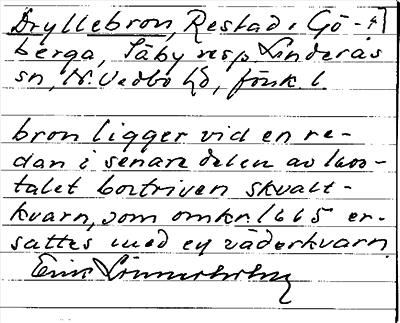 Dryllebron, Restad, Gö-
berga, Säby resp. Linderås
sn, N. Vedbo hd, Jönk. l.
bron ligger vid en re-
dan i senare delen av 1600-
talet bortriven skvalt-
kvarn, som omkr. 1665 er-
sattes med en väderkvarn
Erik